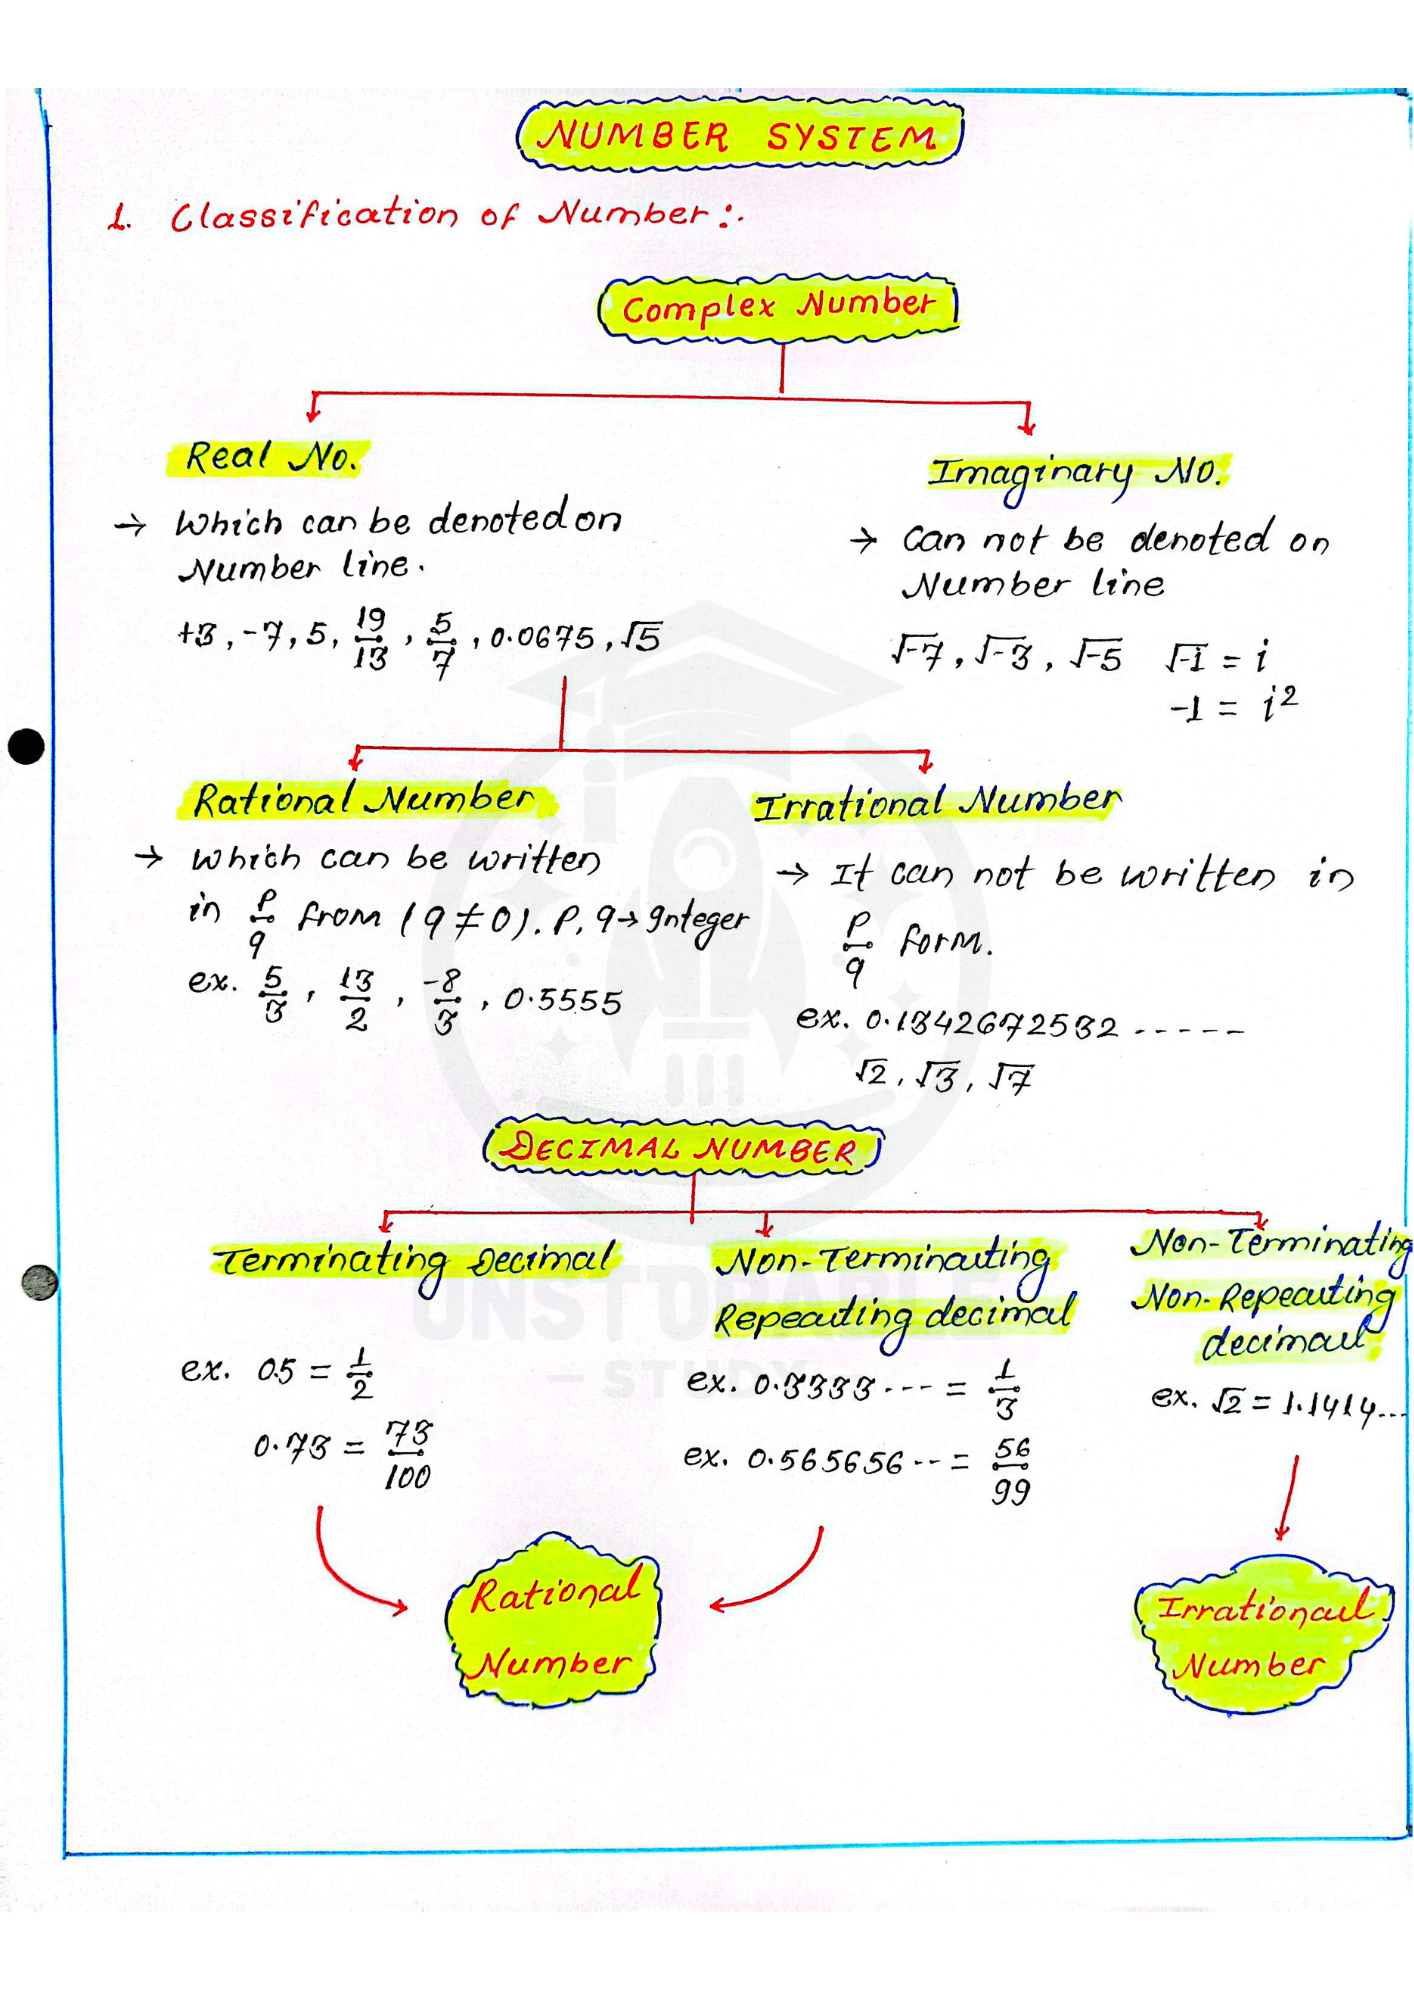 NUMBER SYSTEM
1. Classification of Number:.
Complex Number
Real No.
Imaginary No.
→ Which can be denoted on
Number line.
+3, -7, 5, 19/13, 5/7, 0.0675, √5
→ Can not be denoted on
Number line
√-7, √-3, √-5 √-1 = i
-1 = i²
Rational Number
→ which can be written
in P/q from (q ≠ 0). P, q → Integer
ex. 5/3, 13/2, -8/3, 0.5555
Irrational Number
→ It can not be written in
P/q form.
ex. 0.1342672532 -----
√2, √3, √7
DECIMAL NUMBER
Terminating Decimal
ex. 05 = 1/2
0.73 = 73/100
Non-Terminating
Repeating decimal
ex. 0.3333--- = 1/3
ex. 0.565656-- = 56/99
Non-Terminating
Non-Repeating
decimal
ex. √2 = 1.1414...
Rational
Number
Irrational
Number
UNSTOPABLE
- STUDY